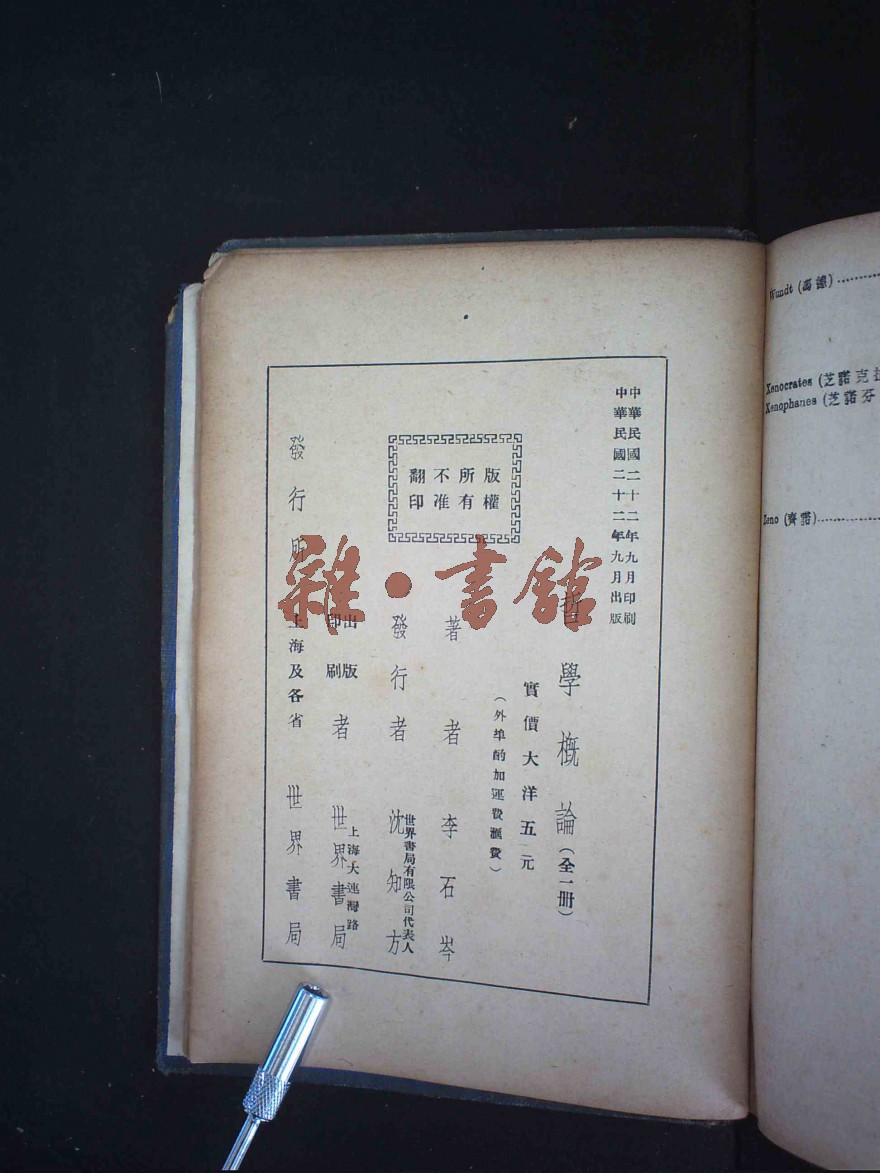 中華民國二十二年九月印刷
中華民國二十二年九月出版
哲學概論（全一册）
實價大洋五元
（外埠酌加運費滙費）
版權
所有
不准
翻印
著者 李石岑
發行者 世界書局有限公司代表人 沈知方
出版
印刷
者 上海大連灣路 世界書局
發行所 上海及各省 世界書局
雜·書館
Wundt (馮德)
Xenocrates (芝諾克拉
Xenophanes (芝諾芬
Zeno (齊諾)